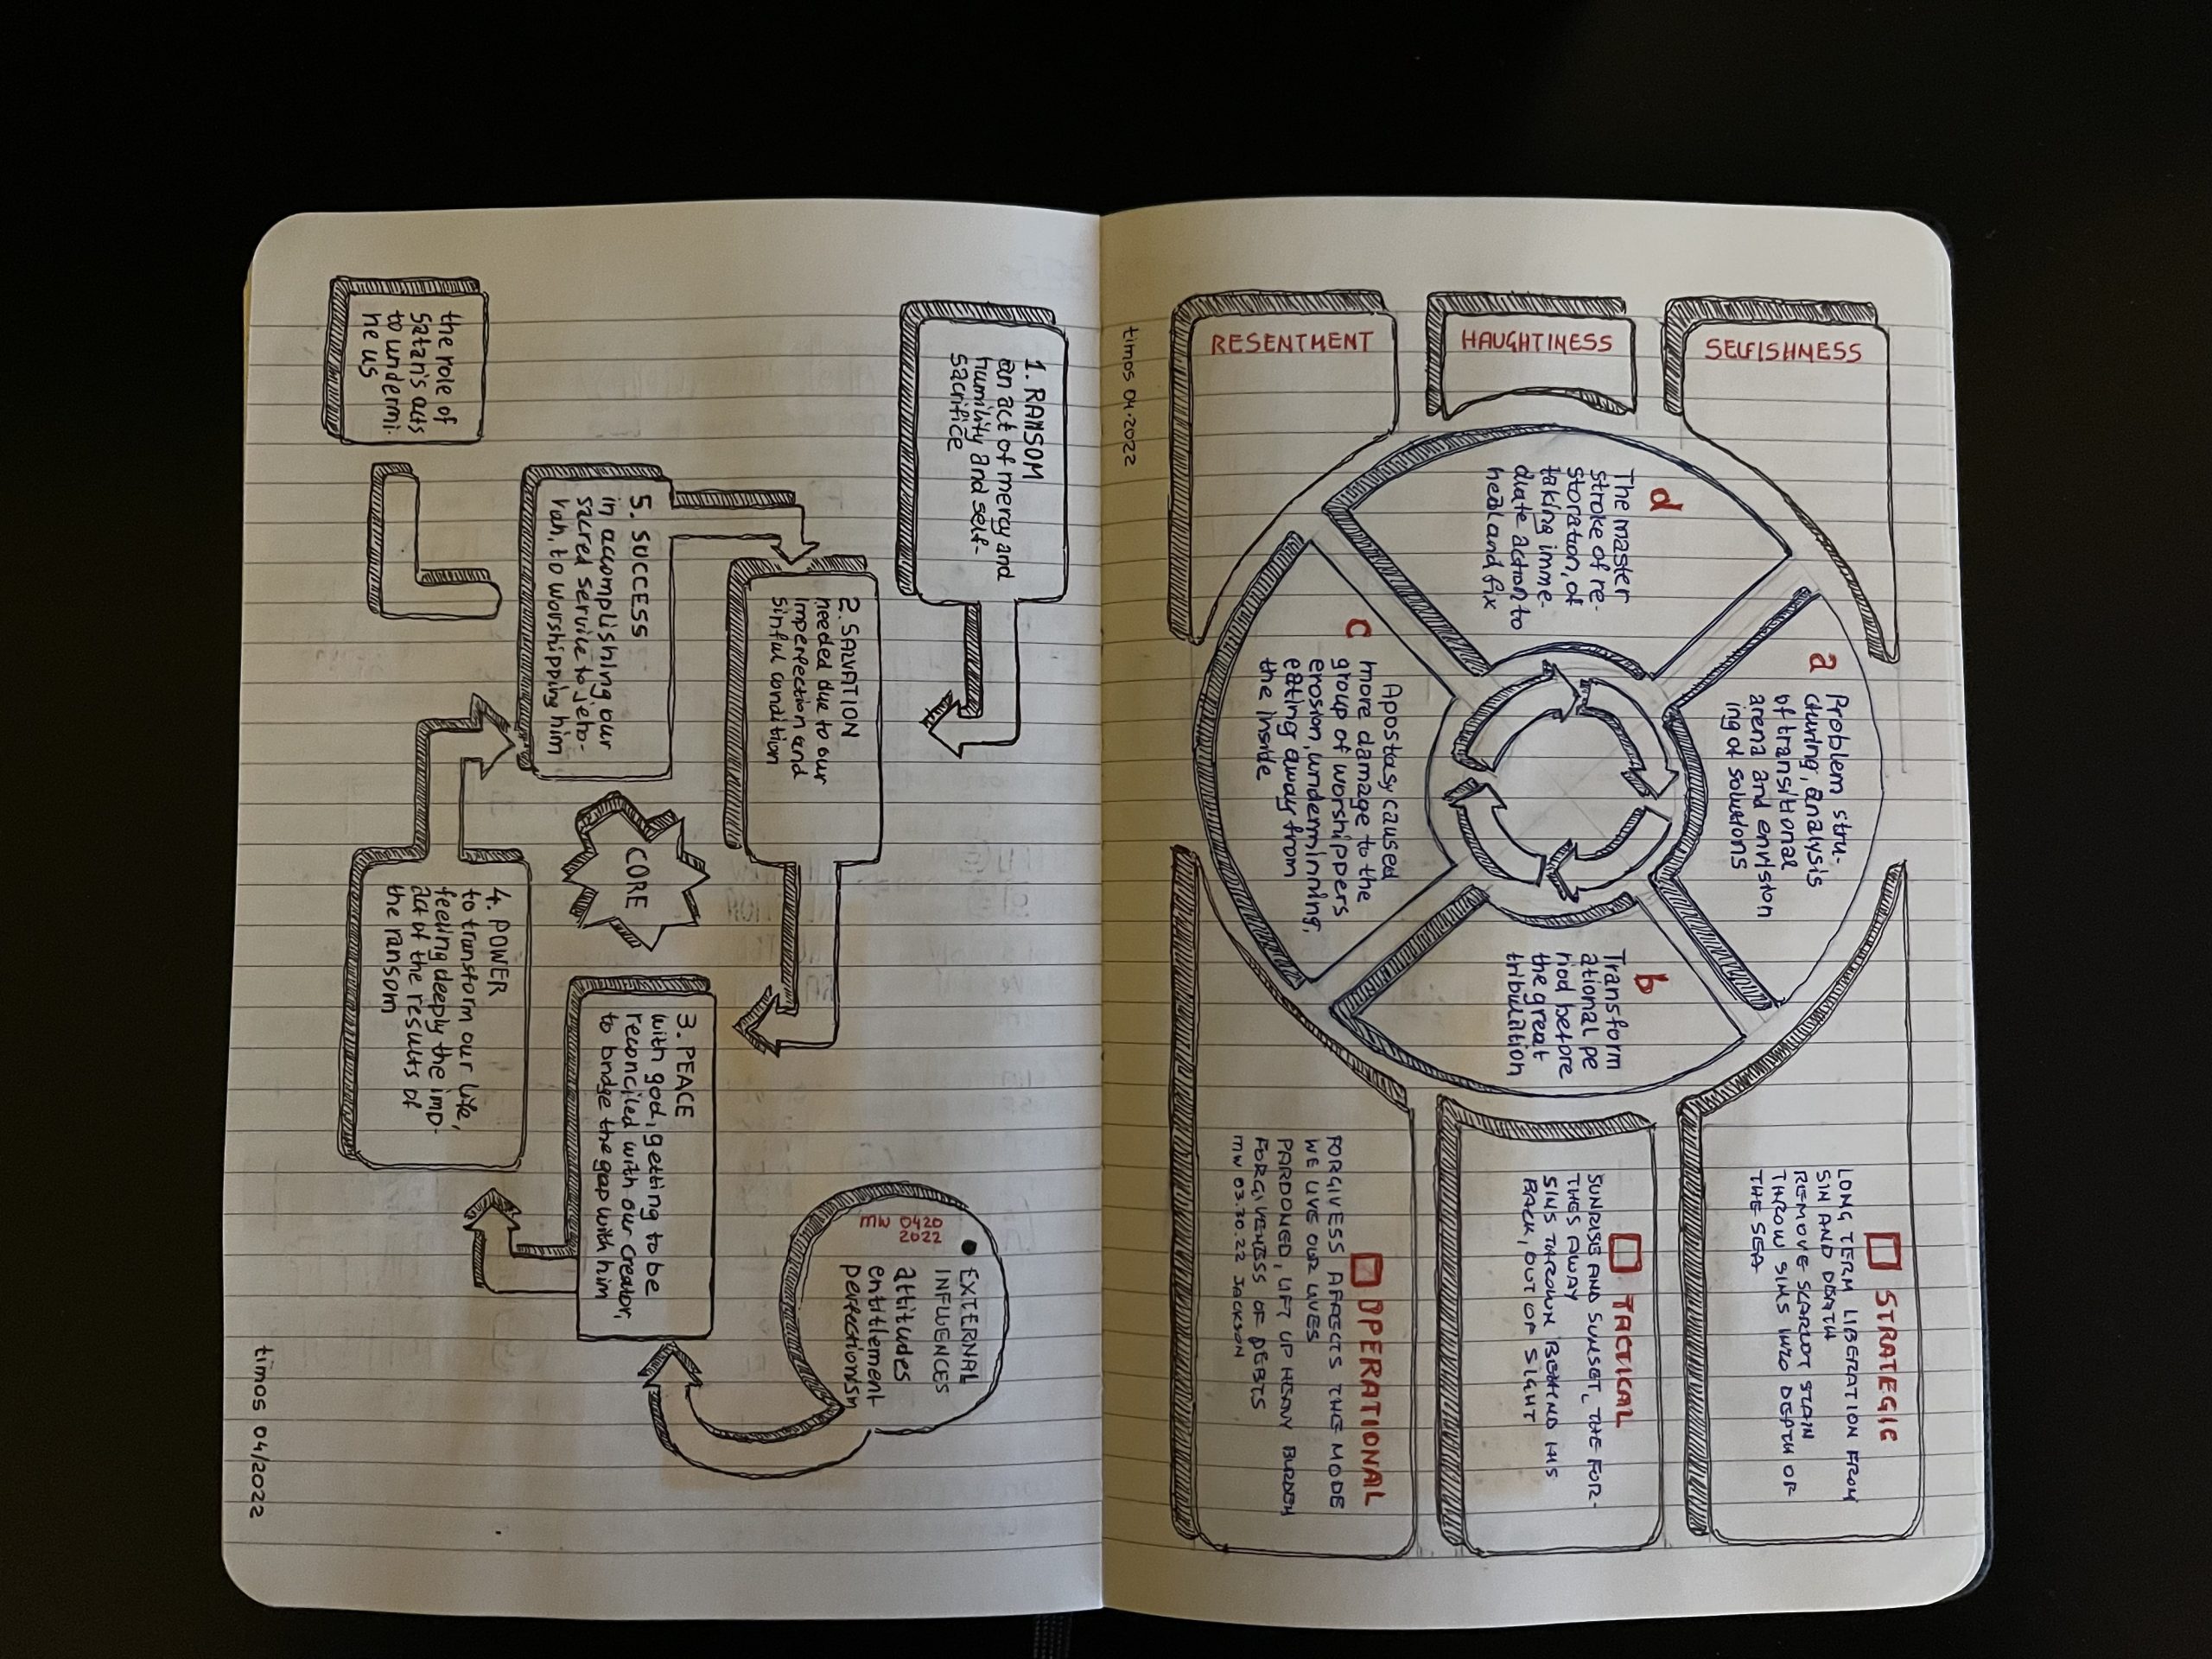 SELFISHNESS
HAUGHTINESS
RESENTMENT
a
Problem stru-
cturing, analysis
of transitional
arena and envision
ing of solutions
b
Transform
ational pe
riod before
the great
tribulation
c
Apostasy caused
more damage to the
group of worshippers
erosion, undermining,
eating away from
the inside
d
The master
stroke of re-
storation, of
taking imme-
diate action to
heal and fix
STRATEGIC
LONG TERM LIBERATION FROM
SIN AND DEATH
REMOVE SCARLOT STAIN
THROW SINS INTO DEPTH OF
THE SEA
TACTICAL
SUNRISE AND SUNSET, THE FOR-
THES AWAY
SINS THROWN BEHIND HIS
BACK, OUT OF SIGHT
OPERATIONAL
FORGIVESS AFFECTS THE MODE
WE LIVE OUR LIVES
PARDONED, LIFT UP HEAVY BURDEN
FORGIVENESS OF DEBTS
MW 03.30.22 JACKSON
timos 04.2022
1. RANSOM
an act of mergy and
humility and self-
sacrifice
2. SALVATION
needed due to our
imperfection and
sinful condition
3. PEACE
with god, getting to be
reconciled with our creator,
to bridge the gap with him
4. POWER
to transform our life,
feeling deeply the imp-
act of the results of
the ransom
5. SUCCESS
in accomplishing our
sacred service to jeho-
vah, to worshipping him
CORE
EXTERNAL
INFLUENCES
attitudes
entitlement
perfectionism
MW 0420
2022
the role of
satan's acts
to undermi-
ne us
timos 04/2022